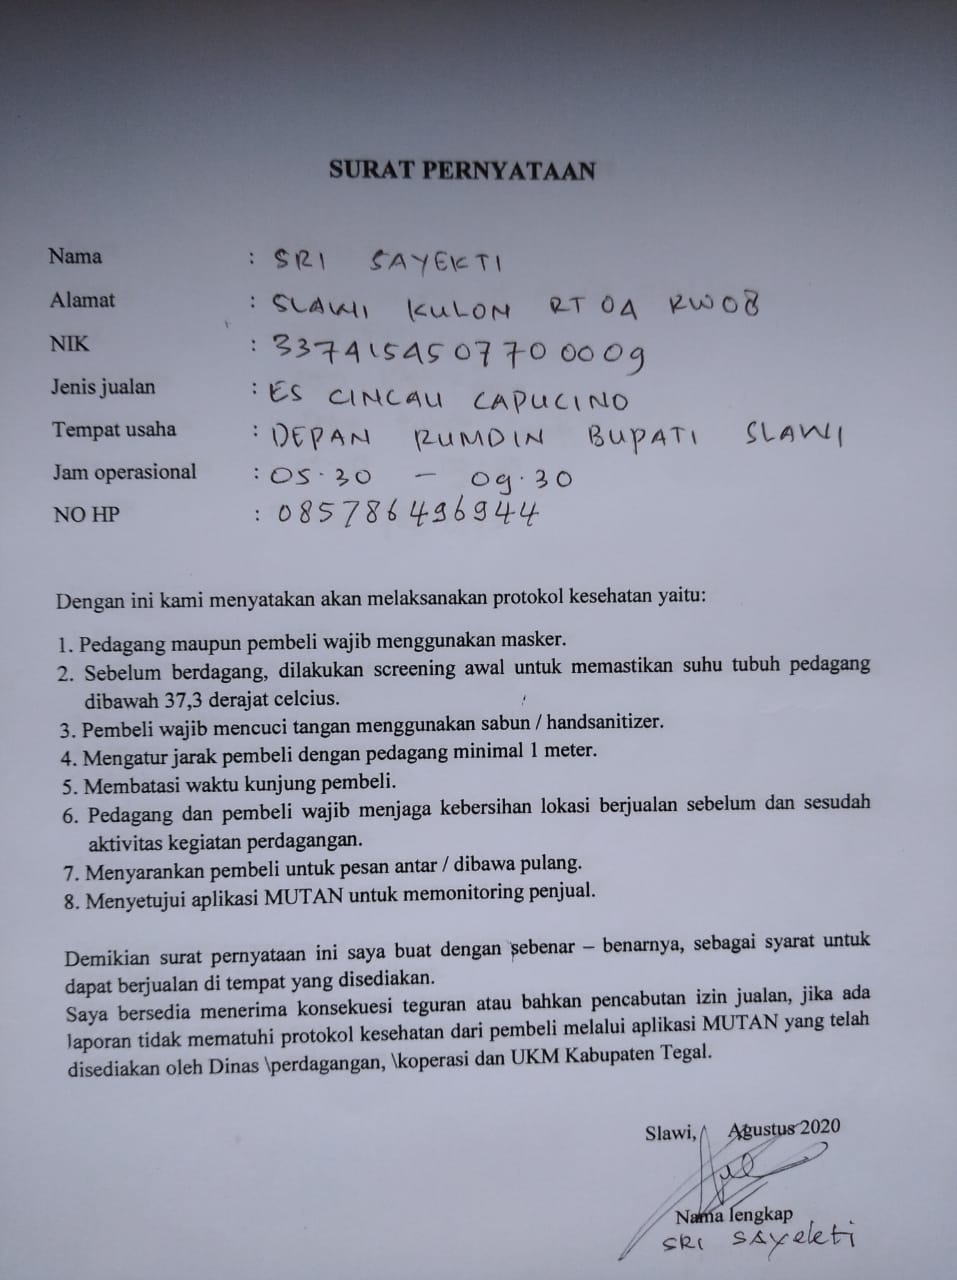 SURAT PERNYATAAN
Nama : SRI SAYEKTI
Alamat : SLAWI KULON RT 04 RW 08
NIK : 3374154507700009
Jenis jualan : ES CINCAU CAPUCINO
Tempat usaha : DEPAN RUMDIN BUPATI SLAWI
Jam operasional : 05.30 – 09.30
NO HP : 085786496944
Dengan ini kami menyatakan akan melaksanakan protokol kesehatan yaitu:
1. Pedagang maupun pembeli wajib menggunakan masker.
2. Sebelum berdagang, dilakukan screening awal untuk memastikan suhu tubuh pedagang
dibawah 37,3 derajat celcius.
3. Pembeli wajib mencuci tangan menggunakan sabun / handsanitizer.
4. Mengatur jarak pembeli dengan pedagang minimal 1 meter.
5. Membatasi waktu kunjung pembeli.
6. Pedagang dan pembeli wajib menjaga kebersihan lokasi berjualan sebelum dan sesudah
aktivitas kegiatan perdagangan.
7. Menyarankan pembeli untuk pesan antar / dibawa pulang.
8. Menyetujui aplikasi MUTAN untuk memonitoring penjual.
Demikian surat pernyataan ini saya buat dengan sebenar – benarnya, sebagai syarat untuk
dapat berjualan di tempat yang disediakan.
Saya bersedia menerima konsekuesi teguran atau bahkan pencabutan izin jualan, jika ada
laporan tidak mematuhi protokol kesehatan dari pembeli melalui aplikasi MUTAN yang telah
disediakan oleh Dinas \perdagangan, \koperasi dan UKM Kabupaten Tegal.
Slawi, Agustus 2020
Nama lengkap
SRI SAYekti